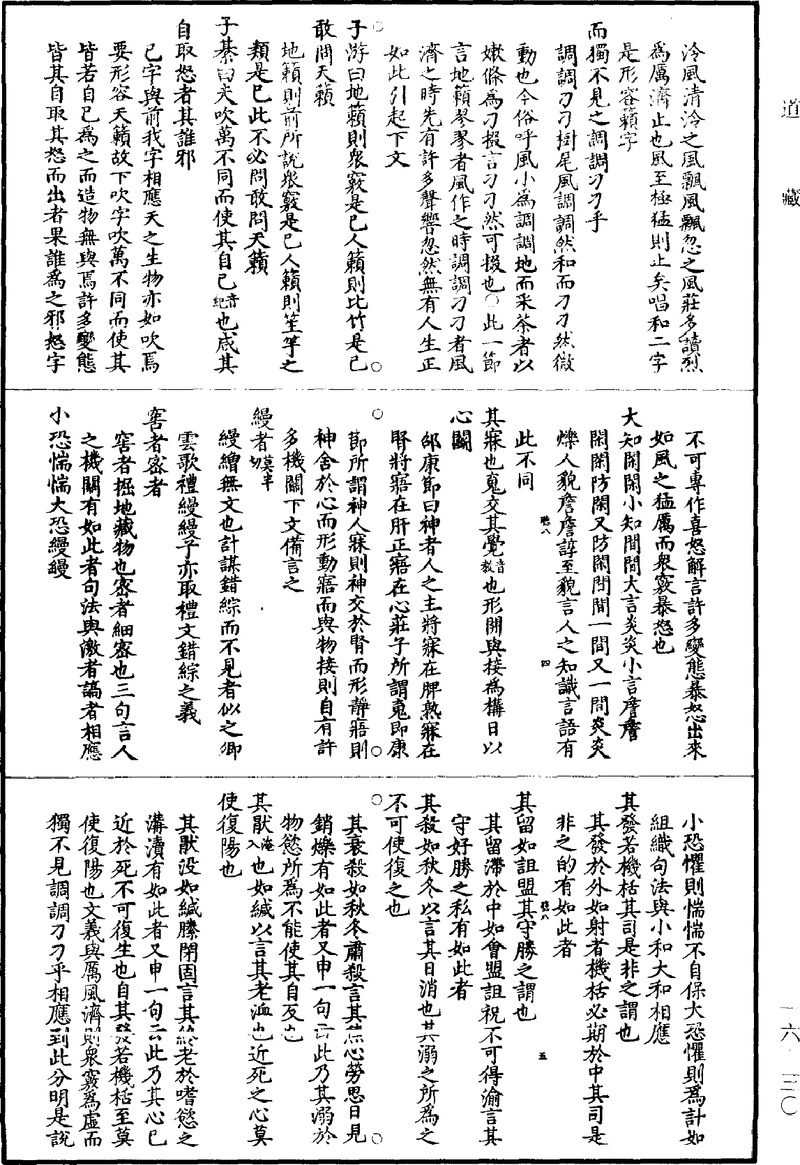 道藏
一六·三〇
泠風清泠之風飄風飄忽之風莊多讀烈
為厲濟止也風至極猛則止矣唱和二字
是形容籟字
而獨不見之調調刁刁乎
調調刁刁樹尾風調調然和而刁刀然微
動也今俗呼風小為調調地而采茶者以
嫰條為刀掇言刁刁然可掇也○此一節
言地籟翏翏者風作之時調調刁刁者風
濟之時先有許多聲響忽然無有人生正
如此引起下文
○
子游曰地籟則衆竅是已人籟則比竹是已○
敢問天籟
地籟則前所說衆竅是已人籟則笙竽之
類是已此不必問敢問天籟
子綦曰夫吹萬不同而使其自己音紀也咸其
自取怒者其誰邪
己字與前我字相應天之生物亦如吹焉
要形容天籟故下吹字吹萬不同而使其
皆若自己為之而造物無與焉許多變態
皆其自取其怒而出者果誰為之邪怒字
不可專作喜怒解言許多變態暴怒出來
如風之猛厲而衆竅暴怒也
大知閑閑小知間間大言炎炎小言詹詹
閑閑防閑又防閑間間一間又一間炎炎
爍人貌詹詹諄至貌言人之知識言語有
此不同
其寐也䰟交其覺音教也形開與接為構日以
心鬭
邵康節曰神者人之主將寐在脾熟寐在
腎將寤在肝正寤在心莊子所謂䰟即康
○
節所謂神人寐則神交於腎而形靜寤則○
神舍於心而形動寤而與物接則自有許
多機關下文備言之
縵者莫半切
縵繒無文也計謀錯綜而不見者似之卿
雲歌禮縵縵予亦取禮文錯綜之義
窖者密者
窖者掘地藏物也密者細密也三句言人
之機關有如此者句法與激者謞者相應
小恐惴惴大恐縵縵
小恐懼則惴惴不自保大恐懼則為計如
組織句法與小和大和相應
其發若機栝其司是非之謂也
其發於外如射者機栝必期於中其司是
非之的有如此者
其留如詛盟其守勝之謂也
其留滯於中如會盟詛祝不可得渝言其
守好勝之私有如此者
其殺如秋冬以言其日消也其溺之所為之
不可使復之也
○
其衰殺如秋冬肅殺言其焦心勞思日見○
銷爍有如此者又申一句云此乃其溺於
物慾所為不能使其自反也
其厭淹入也如緘以言其老洫也近死之心莫
使復陽也
其厭没如緘縢閉固言其終老於嗜慾之
溝瀆有如此者又申一句云此乃其心已
近於死不可復生也自其發若機栝至莫
使復陽也文義與厲風濟則衆竅為虛而
獨不見調調刁刁乎相應到此分明是說